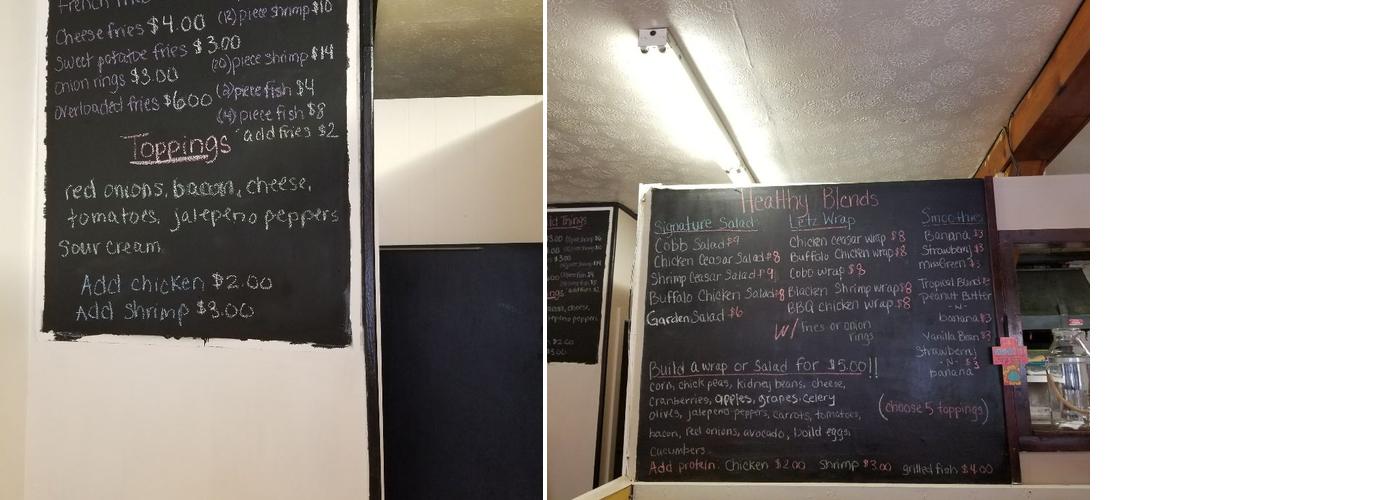 (12) piece shrimp $10
Cheese fries $4.00
Sweet potatoe fries $3.00
(20) piece shrimp $14
onion rings $3.00
(2) piece fish $4
overloaded fries $6.00
(4) piece fish $8
add fries $2
Toppings
red onions, bacon, cheese,
tomatoes, jalepeno peppers
Sour cream
Add chicken $2.00
Add Shrimp $3.00
Healthy Blends
Signature Salad
Cobb Salad $9
Chicken Ceasar Salad $8
Shrimp Ceasar Salad $9
Buffalo Chicken Salad $8
Garden Salad $6
Letz Wrap
Chicken Ceasar wrap $8
Buffalo Chicken wrap $8
Cobb wrap $8
Blacken Shrimp wrap $8
BBQ chicken wrap $8
w/ fries or onion
rings
Smoothies
Banana $3
Strawberry $3
Tropical Blend
Peanut Butter
-N-
banana $3
Vanilla Bean $3
Strawberry
-N- $3
banana
Build a wrap or Salad for $5.00!!
corn, chick peas, kidney beans, cheese,
cranberries, apples, grapes, celery
olives, jalepeno peppers, carrots, tomatoes,
bacon, red onions, avocado, boild eggs,
cucumbers
(choose 5 toppings)
Add protein: Chicken $2.00 Shrimp $3.00 grilled fish $4.00